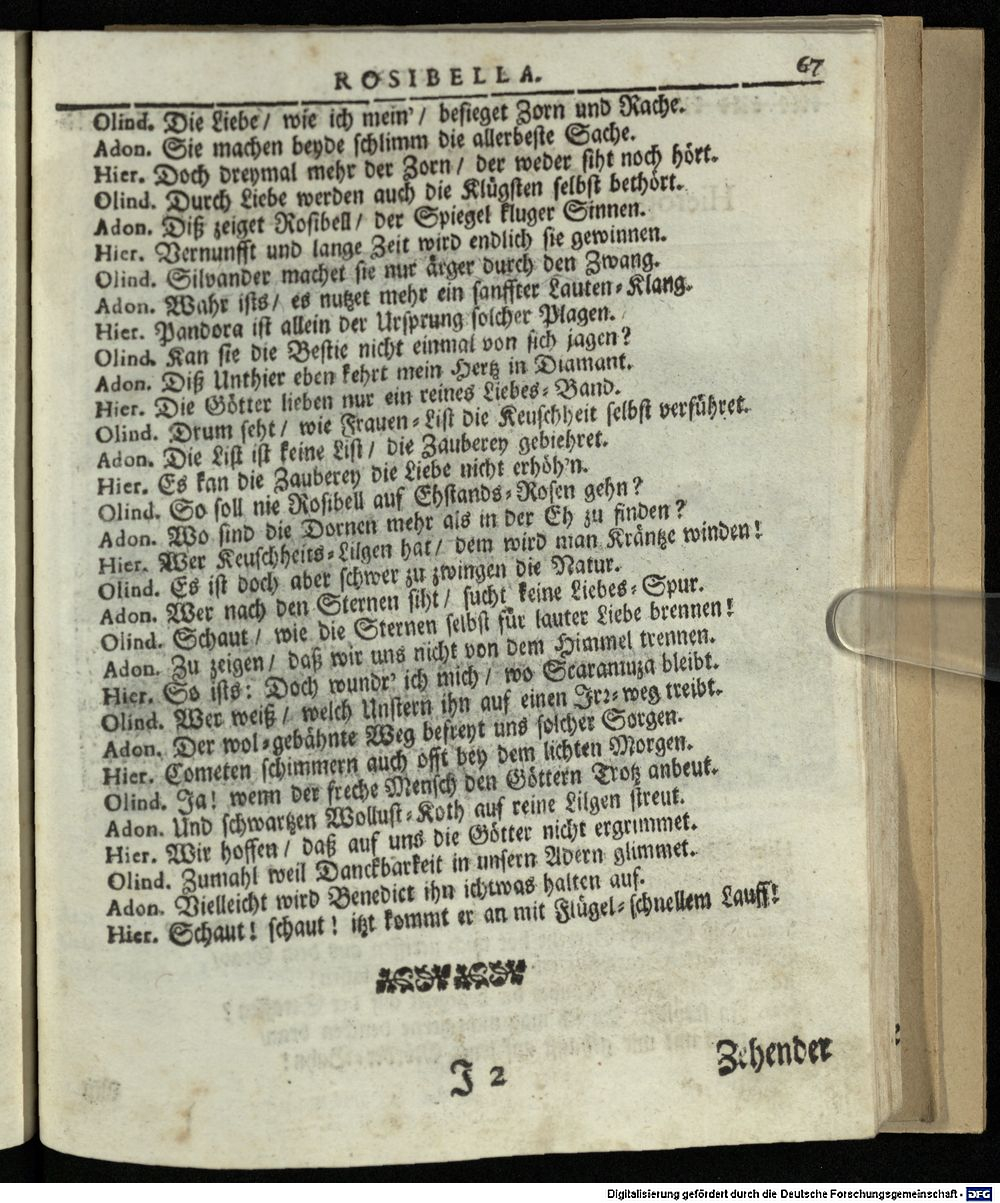 ROSIBELLA. 67
Olind. Die Liebe/ wie ich mein'/ besieget Zorn und Rache.
Adon. Sie machen beyde schlimm die allerbeste Sache.
Hier. Doch dreymal mehr der Zorn/ der weder siht noch hört.
Olind. Durch Liebe werden auch die Klügsten selbst bethört.
Adon. Diß zeiget Rosibell/ der Spiegel kluger Sinnen.
Hier. Vernunfft und lange Zeit wird endlich sie gewinnen.
Olind. Silvander machet sie nur ärger durch den Zwang.
Adon. Wahr ists/ es nutzet mehr ein sanffter Lauten-Klang.
Hier. Pandora ist allein der Ursprung solcher Plagen.
Olind. Kan sie die Bestie nicht einmal von sich jagen?
Adon. Diß Unthier eben kehrt mein Hertz in Diamant.
Hier. Die Götter lieben nur ein reines Liebes-Band.
Olind. Drum seht/ wie Frauen-List die Keuschheit selbst verführet.
Adon. Die List ist keine List/ die Zauberey gebiehret.
Hier. Es kan die Zauberey die Liebe nicht erhöh'n.
Olind. So soll nie Rosibell auf Ehstands-Rosen gehn?
Adon. Wo sind die Dornen mehr als in der Eh zu finden?
Hier. Wer Keuschheits-Lilgen hat/ dem wird man Kräntze winden!
Olind. Es ist doch aber schwer zu zwingen die Natur.
Adon. Wer nach den Sternen siht/ sucht keine Liebes-Spur.
Olind. Schaut/ wie die Sternen selbst für lauter Liebe brennen!
Adon. Zu zeigen/ daß wir uns nicht von dem Himmel trennen.
Hier. So ists: Doch wundr' ich mich/ wo Scaramuza bleibt.
Olind. Wer weiß/ welch Unstern ihn auf einen Irr-weg treibt.
Adon. Der wol-gebähnte Weg befreyt uns solcher Sorgen.
Hier. Cometen schimmern auch offt bey dem lichten Morgen.
Olind. Ja! wenn der freche Mensch den Göttern Trotz anbeut.
Adon. Und schwartzen Wollust-Koth auf reine Lilgen streut.
Hier. Wir hoffen/ daß auf uns die Götter nicht ergrimmet.
Olind. Zumahl weil Danckbarkeit in unsern Adern glimmet.
Adon. Vielleicht wird Benedict ihn ichtwas halten auf.
Hier. Schaut! schaut! itzt kommt er an mit Flügel-schnellem Lauff!
J 2 Zehender
Digitalisierung gefördert durch die Deutsche Forschungsgemeinschaft - DFG